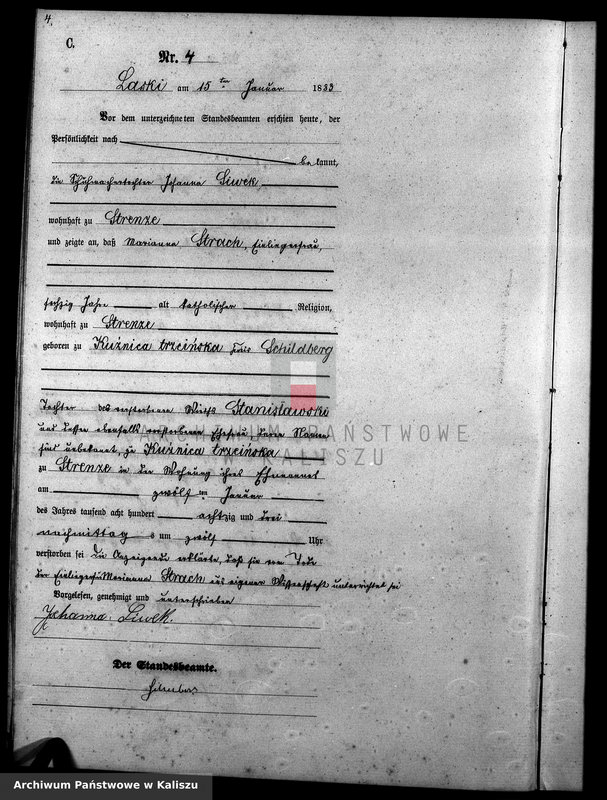 4.
C.
Nr. 4
Laski am 15ten Januar 1883
Vor dem unterzeichneten Standesbeamten erschien heute, der
Persönlichkeit nach
be kannt,
die Schuhmachertochter Johanna Siwek,
wohnhaft zu Strenze
und zeigte an, daß Marianna Strach, Einliegerfrau,
sechzig Jahre alt katholischer Religion,
wohnhaft zu Strenze
geboren zu Kuźnica trzcińska Kreis Schildberg
Tochter des verstorbenen Wirths Stanisławski
und dessen ebenfalls verstorbene Ehefrau, deren Namen
sind unbekannt, zu Kuźnica trzcińska
zu Strenze in der Wohnung ihres Ehemannes
am zwölf ten Januar
des Jahres tausend acht hundert achtzig und drei
nachmittags um zwölf Uhr
verstorben sei die Anzeigende erklärte, daß sie vom Tode
der Einliegerfrau Marianna Strach aus eigener Wissenschaft unterrichtet sei
Vorgelesen, genehmigt und unterschrieben
Johanna Siwek.
Der Standesbeamte.
ARCHIWUM PAŃSTWOWE
W KALISZU
Archiwum Państwowe w Kaliszu